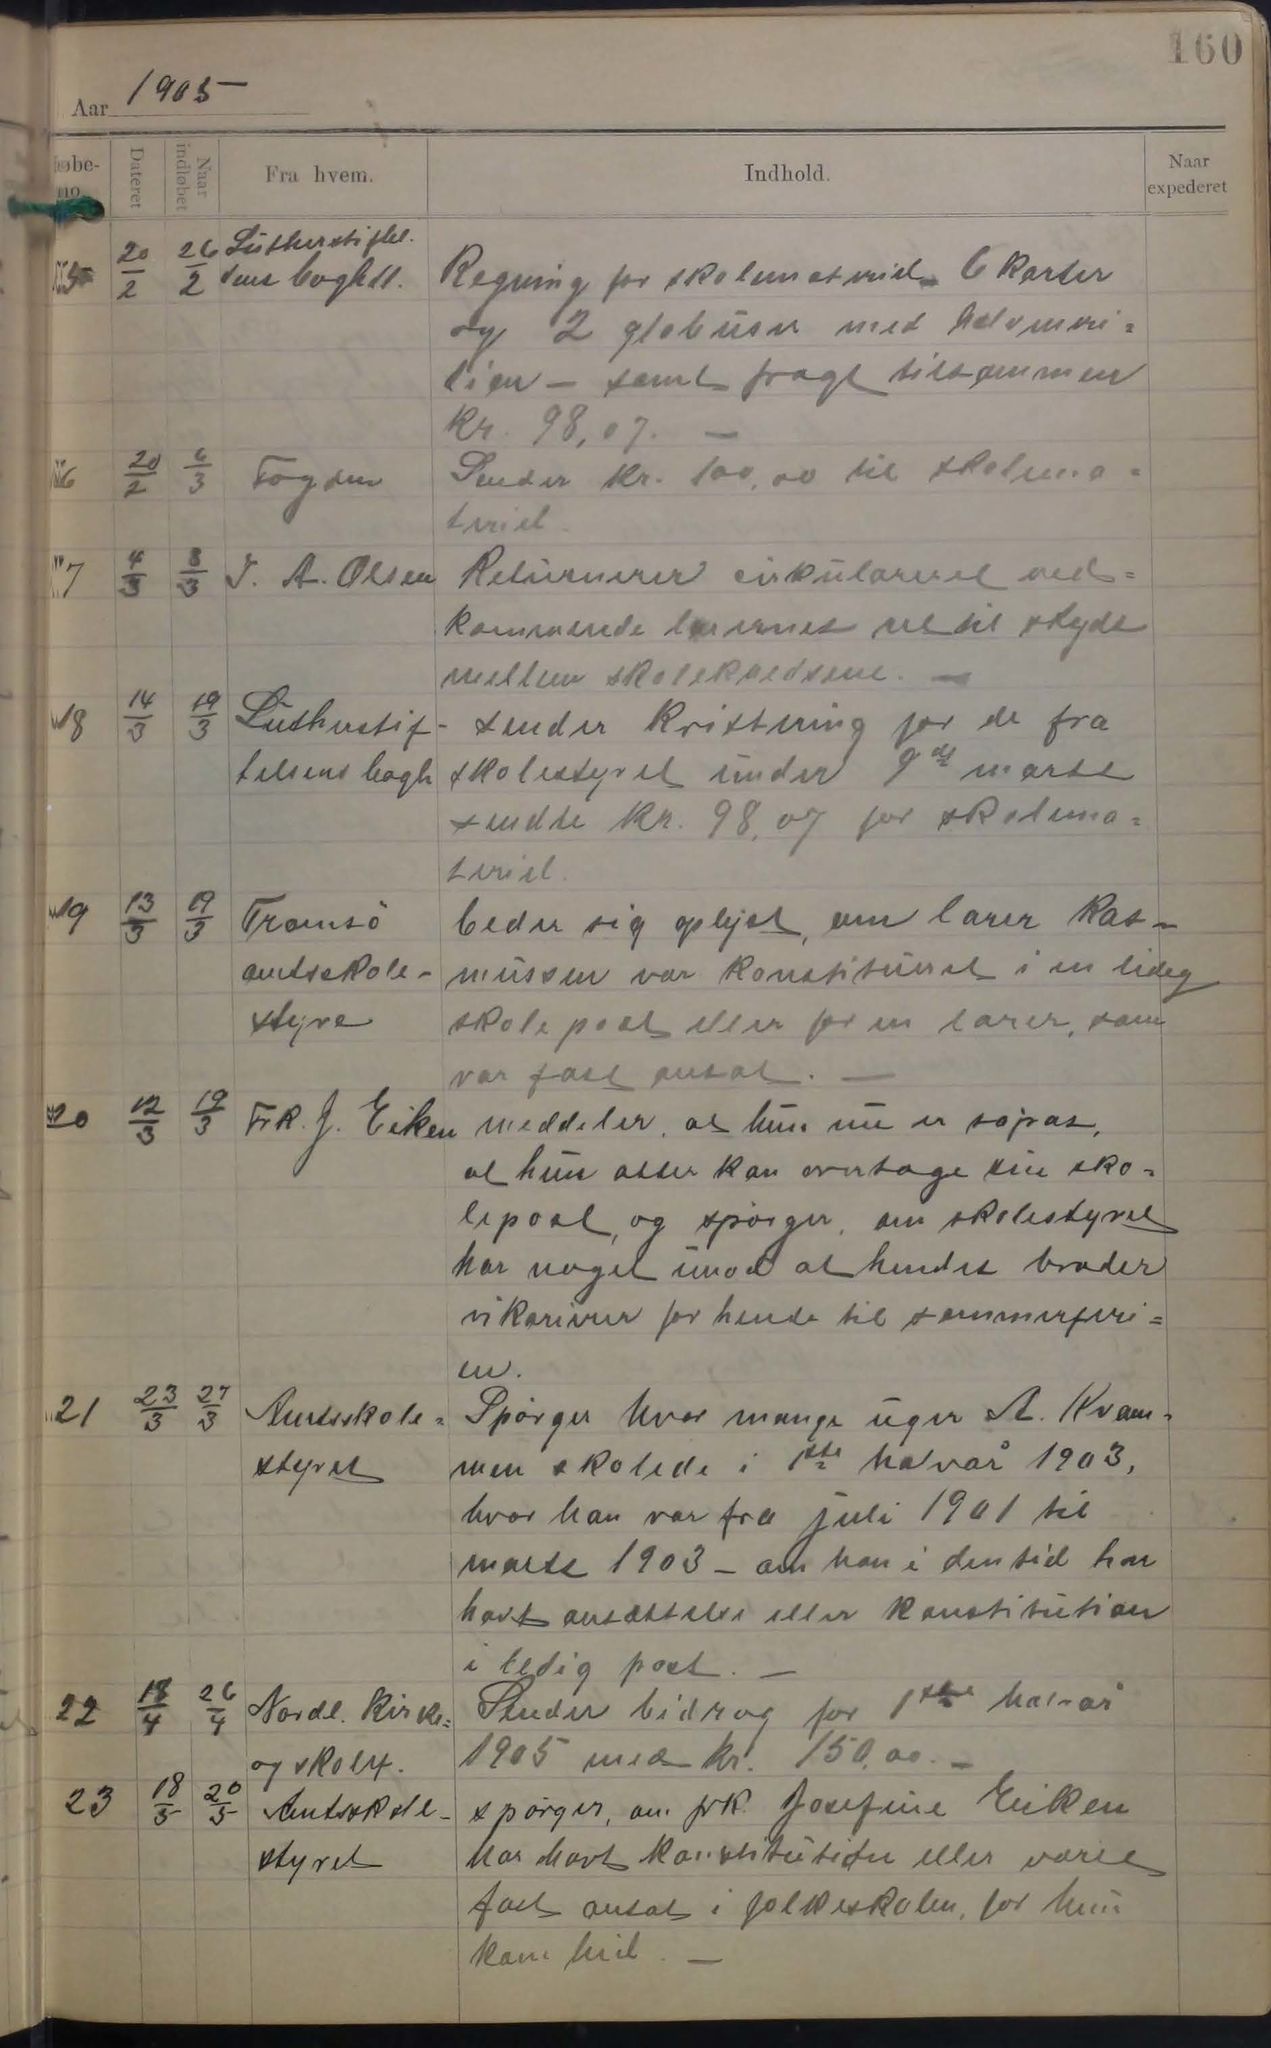 160
Aar 1905
Løbe-no. Dateret Naar indløbet Fra hvem. Indhold. Naar expederet
15 20/2 26/2 Lutherstiftel. Regning for skolemateriel 6 karter
sens boghll. og 2 globuser med halvmeri=
dian - samt fragt tilsammen
kr. 98,07. -
16 20/2 6/3 Fogden Sender kr. 100,00 til skolema=
teriel.
17 4/3 8/3 J. A. Olsen Returnerer cirkulæreret ved=
kommende lærernes ret til skyds
mellem skolekredsene. -
18 14/3 19/3 Lutherstif- sender kvittering for de fra
telsens bogh skolestyret under 9de marts
sendte kr. 98,07 for skolema=
teriel.
19 13/3 19/3 Tromsö beder sig oplyst, om lærer Ras-
amtsskole- mussen var konstitueret i en ledig
styre skolepost eller for en lærer, som
var fast ansat. -
20 12/3 19/3 Frk. J. Eiken meddeler, at hun nu er såpas,
at hun atter kan overtage sin sko=
lepost, og spörger, om skolestyret
har noget imod at hendes broder
vikarierer for hende til sommerferi=
en.
21 23/3 27/3 Amtsskole= Spörger hvor mange uger A. Kvam=
styret men skolede i 1ste halvår 1903,
hvor han var fra juli 1901 til
marts 1903 - om han i den tid har
havt ansættelse eller konstitution
i ledig post. -
22 18/4 26/4 Nordl. kirke= Sender bidrag for 1ste halvår
og skolef. 1905 med kr. 150,00. -
23 18/5 20/5 Amtsskole- spörger, om frk. Josefine Eiken
styret har havt konstitution eller været
fast ansat i folkeskolen, för hun
kom hid. -